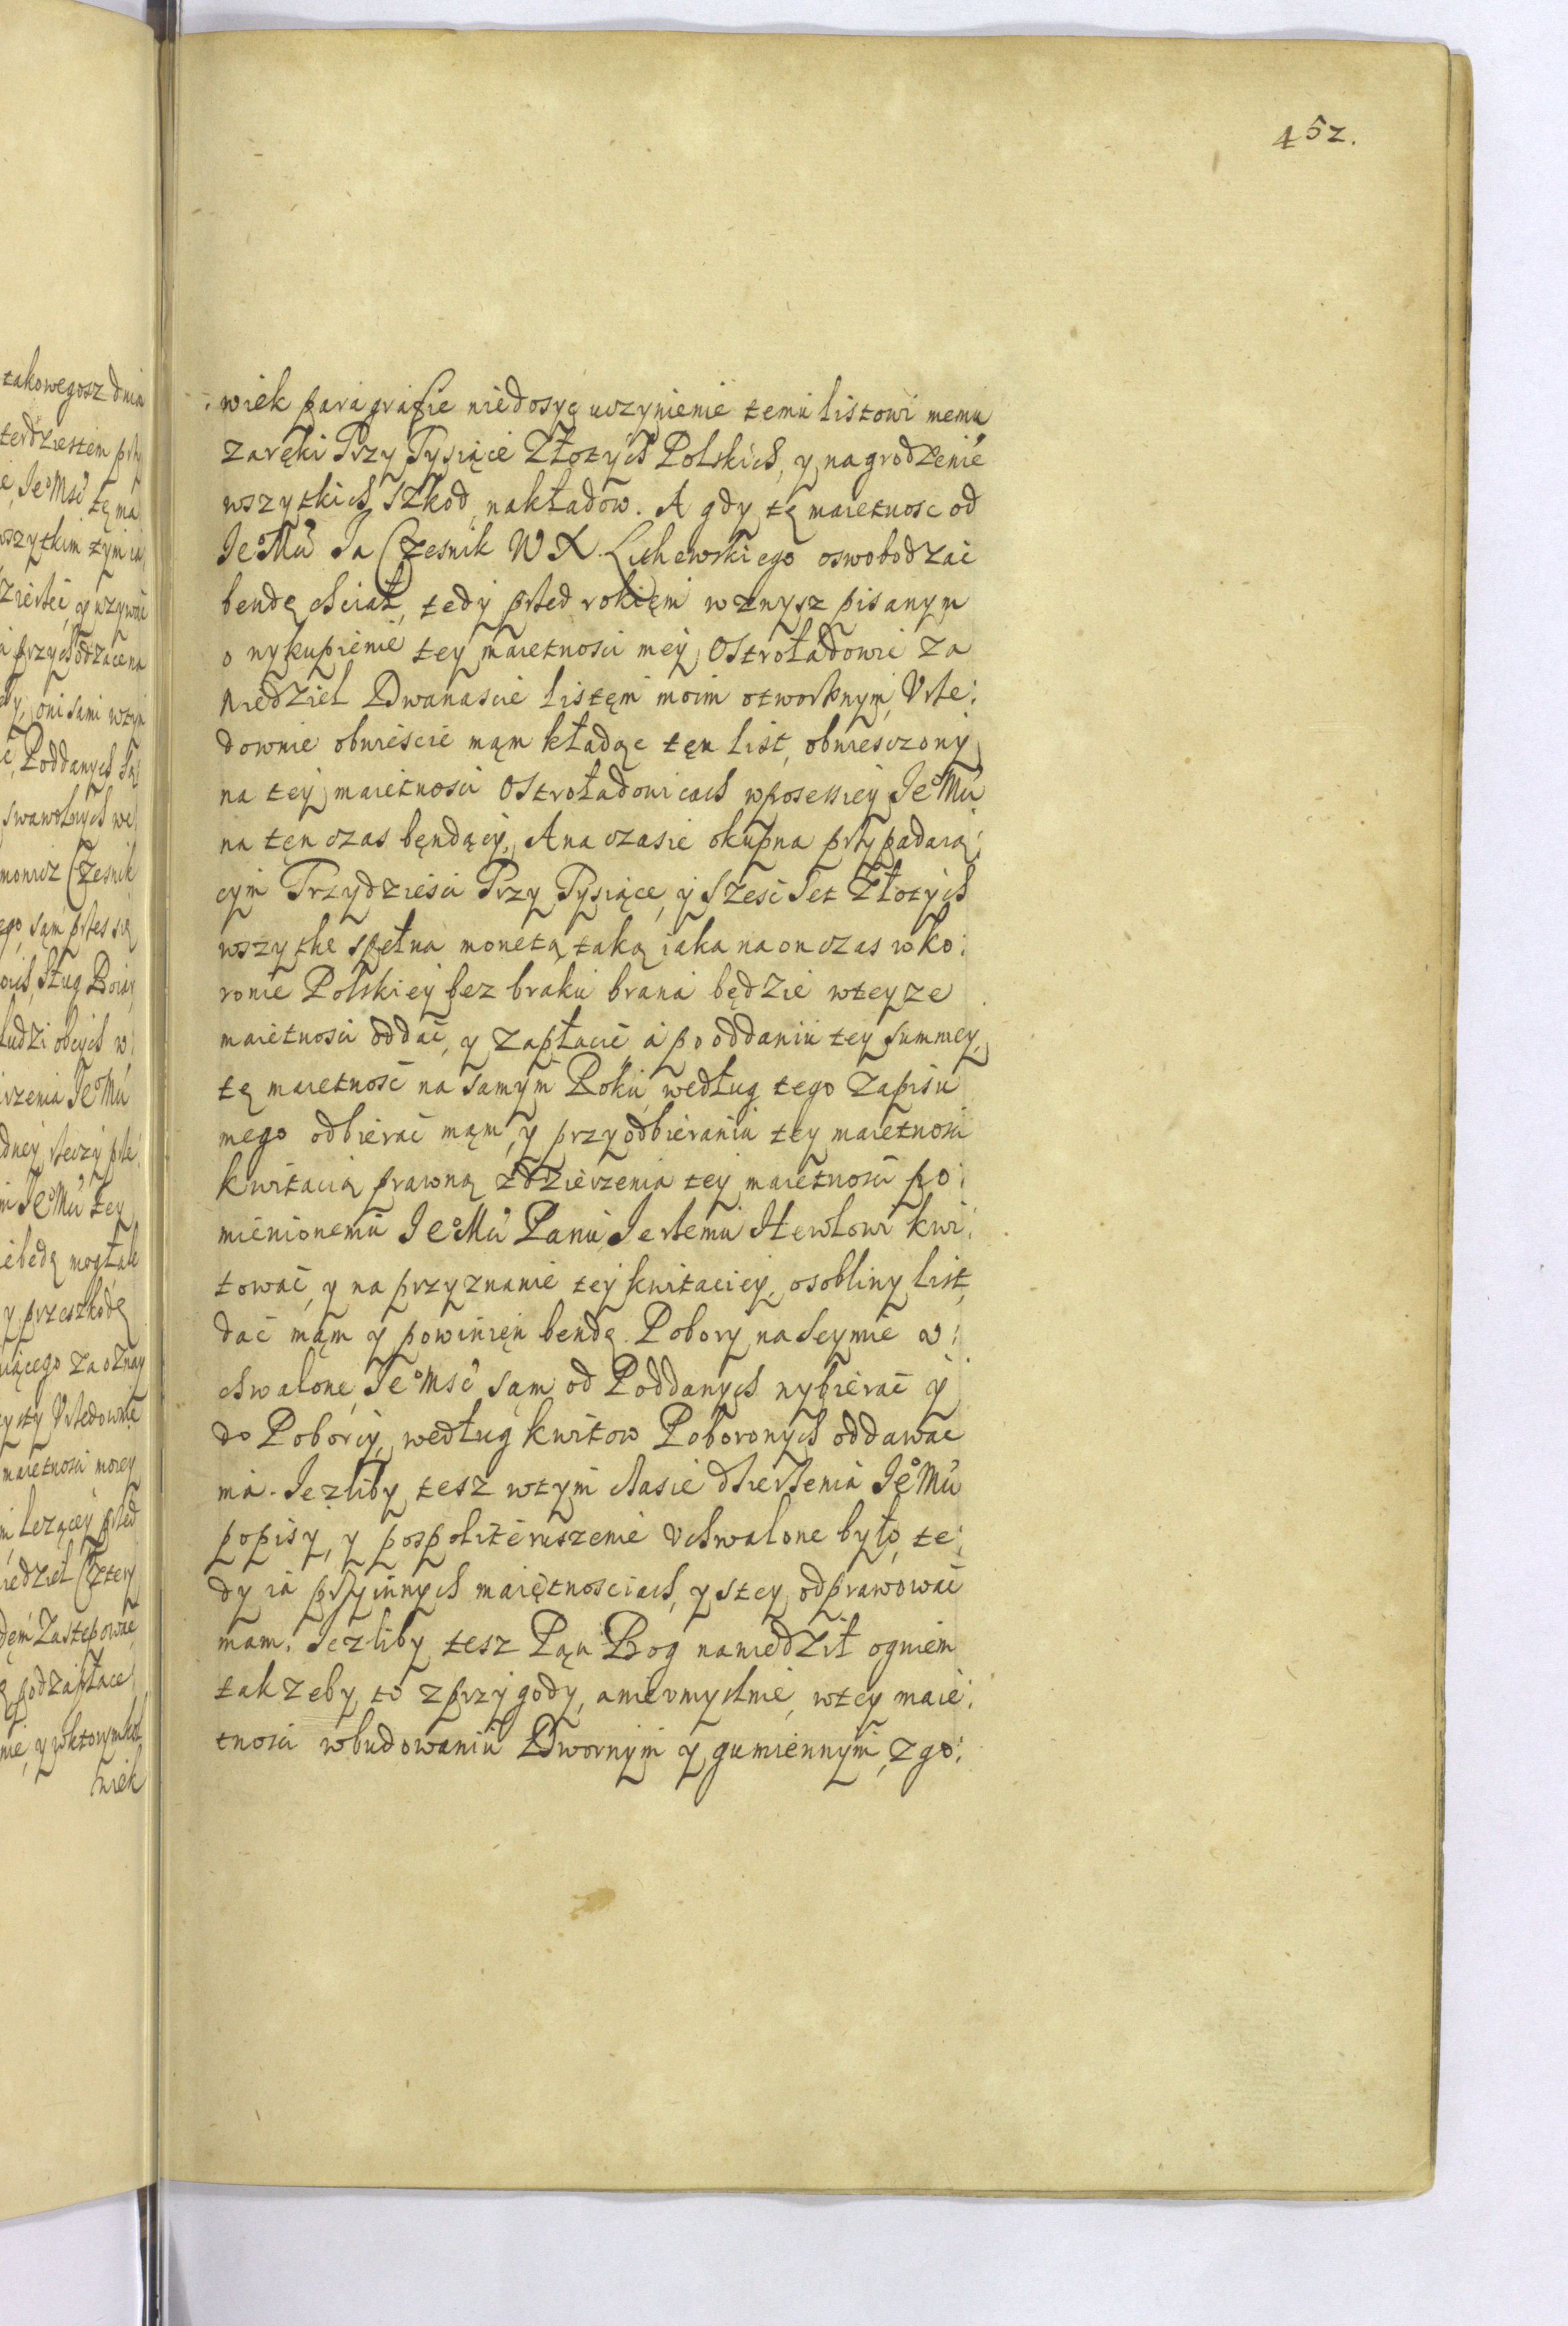 452.
wiek paragrafie niedosyc uczynienie temu listowi memu
zaręki Trzy Tysiące Złotych Polskich, y nagrodzenie
wszytkich szkod, nakładow. A gdy tę maietnosc od
JeoMci Ja Czesnik W X L uchewskiego oswobodzać
bendę chciał, tedy przed rokięm wznysz pisanym
o wykupienie tey maietnosci mey Ostroładowic za
niedziel Dwanascie listęm moim otworznym, Vrzę:
downie obwieście mąm kładąc tęn list, obwiesczony
na tey maietnosci Ostroładowicach wposessiey JeoMci
na tęn czas bęndący, A na czasie okupna przypadaią:
cym Trzydzieści Trzy Tysiące, y Szesc Set Złotych
wszytke spełna monetą taką iaka na on czas wko:
ronie Polskiey bez braku brana będzie wteyze
maietnosci oddać, y zapłacić a po oddaniu tey summey,
tę maietność na samym Roku, według tego Zapisu
mego odbierać mąm, y przyodbieraniu tey maietnosci
kwitacią prawną zdzierzenia tey maietnosci po:
mienionemu JeoMci Panu Jerzemu Hewłowi kwi:
tować, y na przyznanie tey kwitaciey, osobliwy list,
dać mąm y powinięn bendę. Pobory na Seymie v:
chwalone, JeoMsć sąm od Poddanych wybierać y
do Poborcy, według kwitow Poborowych oddawać
ma. Jezliby tesz wtym czasie dzierzenia JeoMci
popisy, y pospolite ruszenie Vchwalone było, te:
dy ia przyinnych maiętnosciach, y stey odprawować
mam. Jezliby tesz Pąn Bog nawiedził ogniem
takzeby to zprzygody, anievmyslnie, wtey maie:
tnosci wbudowaniu Dwornym y gumiennym, zgo: